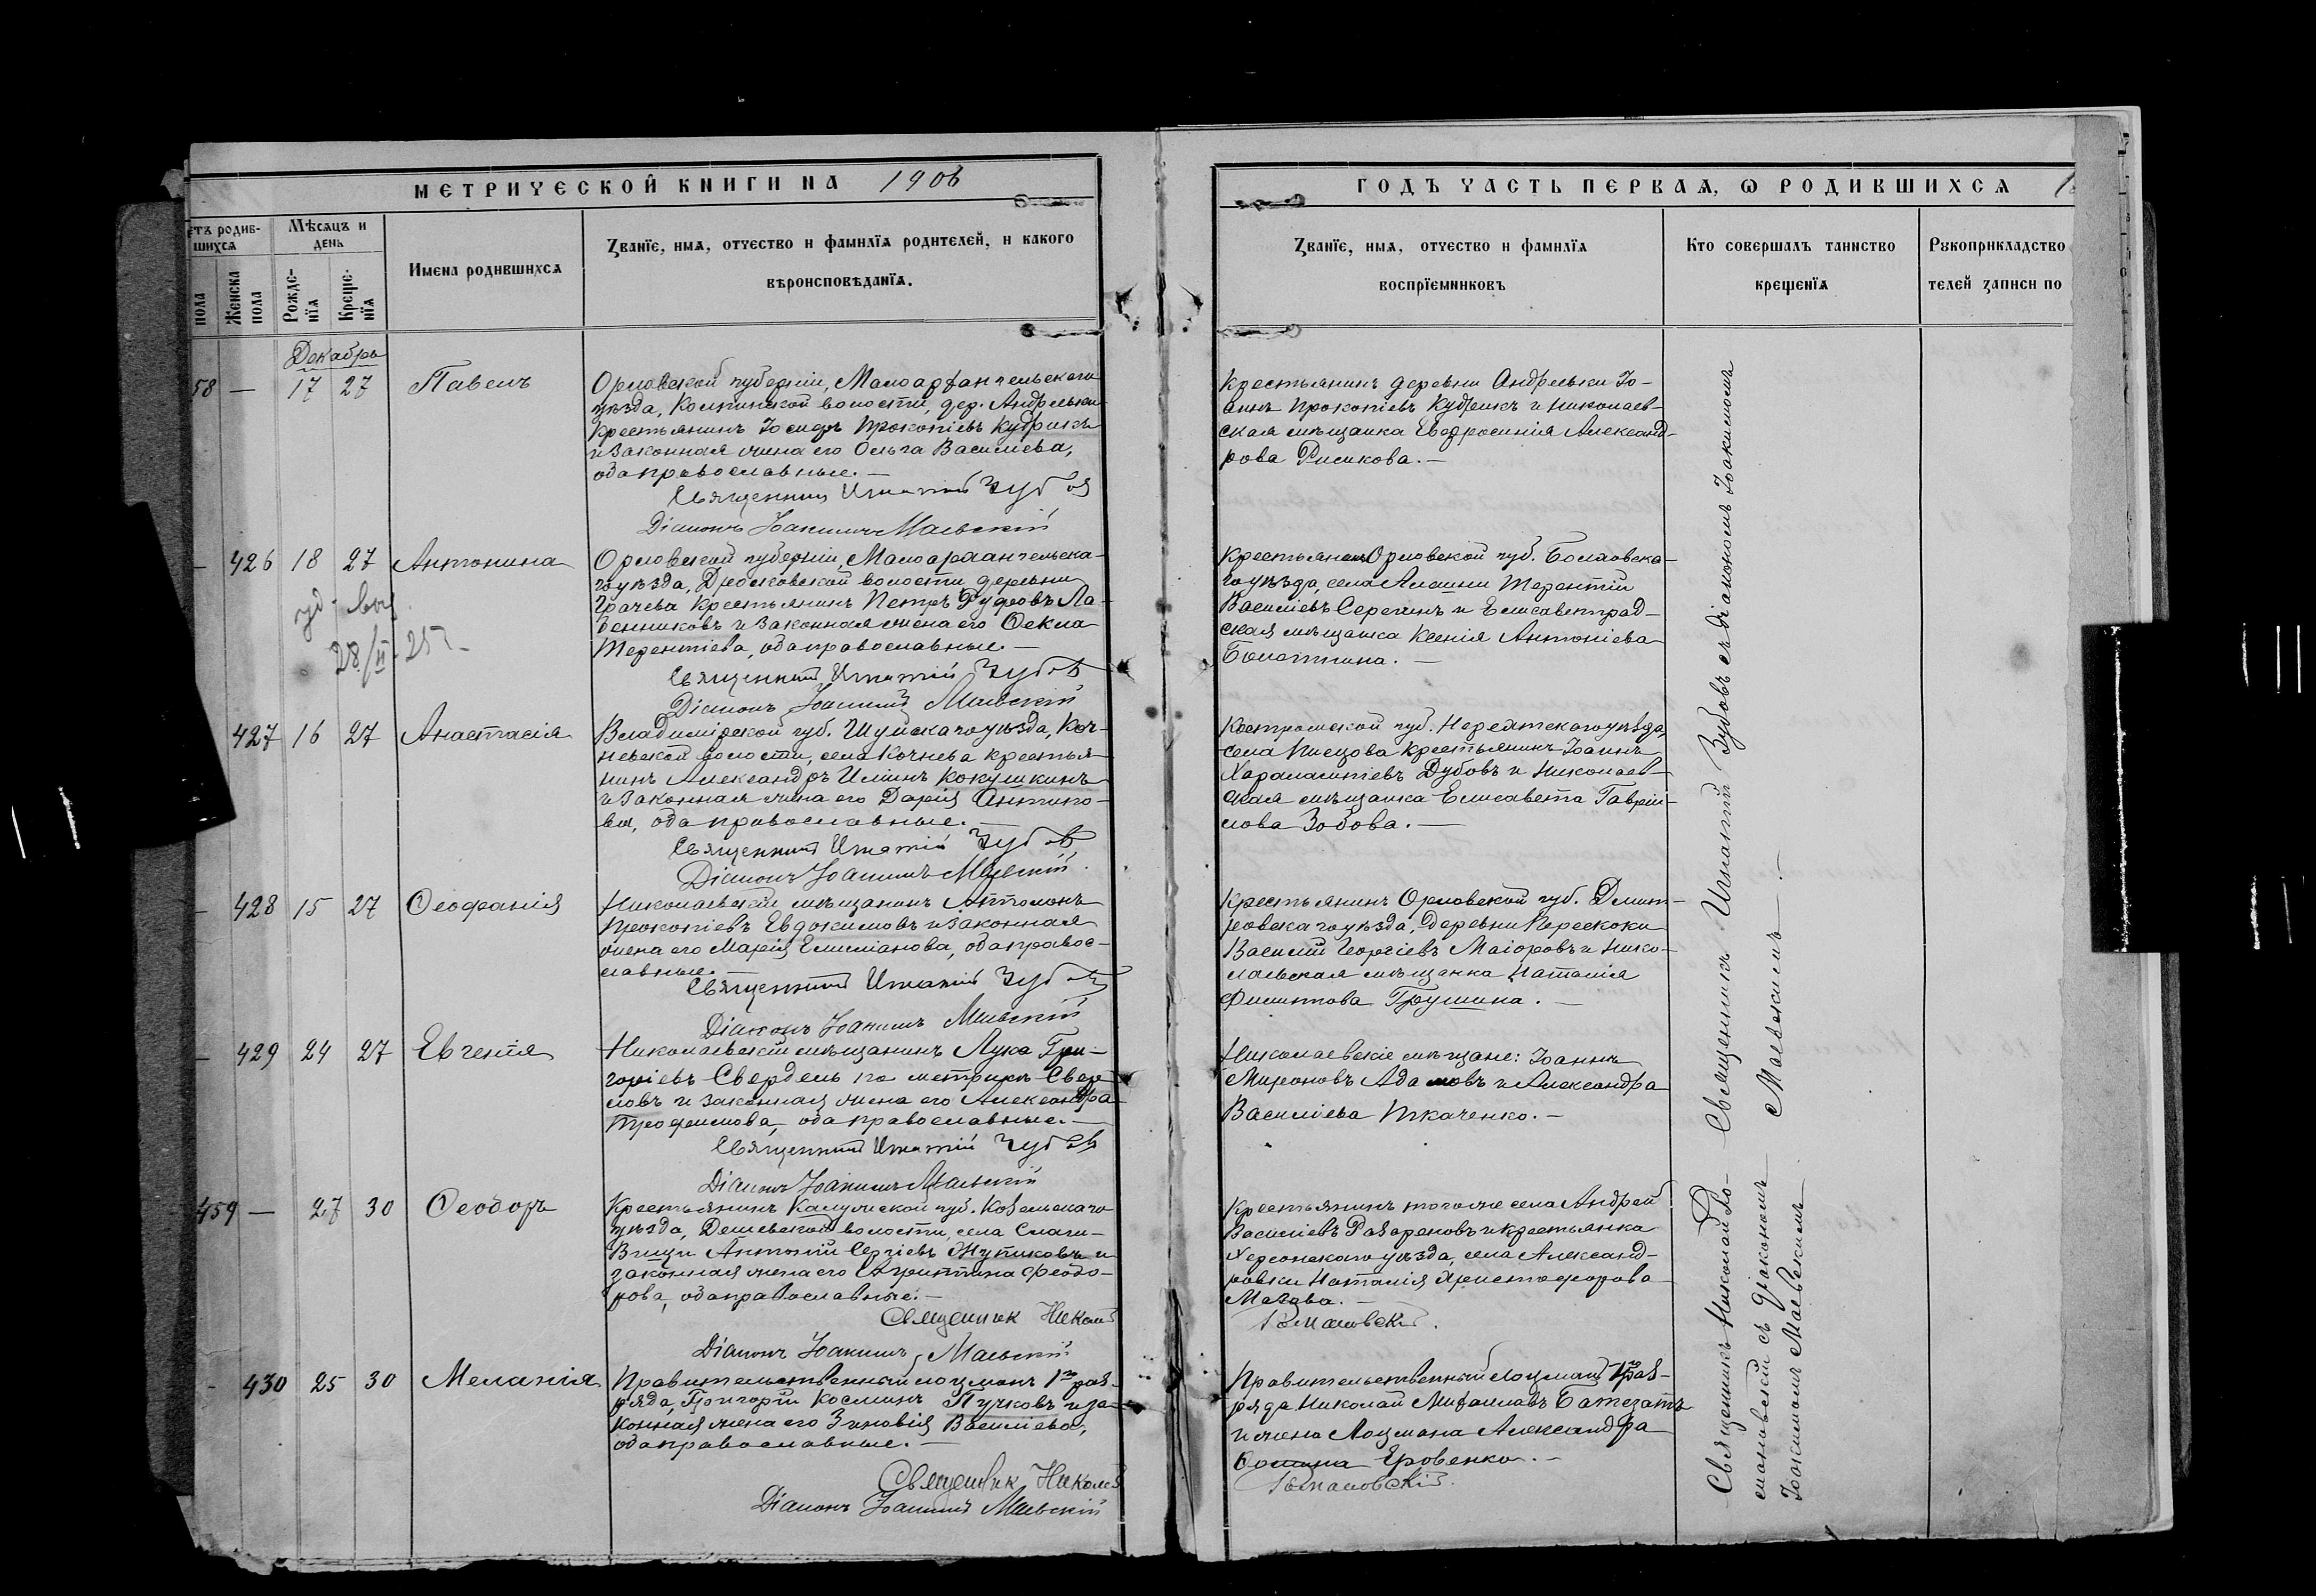 МЕТРИЧЕСКОЙ КНИГИ НА 1906
ГОДЪ ЧАСТЬ ПЕРВАЯ, Ѡ РОДИВШИХСЯ
етъ родив-
шихся
Мѣсяцъ и
день
пола
Женска
пола
Рожде-
нїя
Креще-
нїя
Имена родившихся
Званїе, имя, отчество и фамилїя родителей, и какого
вѣроисповѣданїя.
Званїе, имя, отчество и фамилїя
воспрїемниковъ
Кто совершалъ таинство
крещенїя
Рукоприкладство
телей записи по
Декабрь
58 — 17 27 Павелъ
Орловской губерніи, Малоархангельскаго
уѣзда, Колпинской волости, дер. Андреевки
крестьянинъ Іосифъ Прокопіевъ Кудринъ
и законная жена его Ольга Василіева,
оба православные. —
Священник Игнатій Зубов
Діаконъ Іоакимъ Маевскій
Крестьянинъ деревни Андреевки Іо-
аннъ Прокопіевъ и Николаев-
ская мѣщанка Евфросинія Александ-
рова Рысикова. —
— 426 18 27 Антонина
28/II 25
Орловской губерніи, Малоархангельска-
го уѣзда, Дросковской волости деревни
Грачева крестьянинъ Петръ Руфовъ Ла-
бенниковъ и законная жена его Ѳекла
Терентіева, оба православные. —
Священник Игнатій Зубов
Діаконъ Іоакимъ Маевскій
Крестьянинъ Орловской губ. Болховска-
го уѣзда, села Алешни Терентій
Василіевъ Серегинъ и Елисаветград-
ская мѣщанка Ксенія Антоніева
Болотина. —
427 16 27 Анастасія
Владимірской губ. Шуйскаго уѣзда, Коч-
невской волости, села Кочнева крестья-
нинъ Александръ Илiинъ Кокушкинъ
и законная жена его Дарія Антипо-
ва, оба православные. —
Священник Игнатій Зубов
Діаконъ Іоакимъ Маевскій
Костромской губ. Нерехтскаго уѣзда,
села Писцова крестьянинъ Іоаннъ
Харалампіевъ Дубовъ и Николаев-
ская мѣщанка Елисавета Гаврiи-
лова Зобова. —
— 428 15 27 Ѳеофанія
Николаевскій мѣщанинъ
Прокопіевъ Евдокимовъ и законная
жена его Марія Емиліанова, оба правос-
лавные. —
Священник Игнатій Зубов
Діаконъ Іоакимъ Маевскій
Крестьянинъ Орловской губ. Дмит-
ровскаго уѣзда, деревни Перескоки
Василій Георгіевъ Маіоровъ и Нико-
лаевская мѣщанка Наталія
Филиппова Грушина. —
— 429 24 27 Евгенія
Николаевскій мѣщанинъ Лука Гри-
горіевъ Свердель по метрикѣ Сверд-
ловъ и законная жена его Александра
Трофимова, оба православные. —
Священник Игнатій Зубов
Діаконъ Іоакимъ Маевскій
Николаевскіе мѣщане: Іоаннъ
Мироновъ Адамовъ и Александра
Василіева Ткаченко. —
459 — 27 30 Ѳеодоръ
Крестьянинъ Калужской губ. Козельскаго
уѣзда, Дешевской волости, села
Антоній Сергіевъ Жутиковъ и
законная жена его Агриппина Ѳеодо-
рова, оба православные. —
Священник Николай
Романовскій.
Діаконъ Іоакимъ Маевскій
Крестьянинъ того же села Андрей
Василіевъ Разореновъ и крестьянка
Херсонскаго уѣзда, села Александ-
ровки Наталія Христофорова
— 430 25 30 Меланія
Правительственный лоцманъ 1го раз-
ряда, Григорій Косминъ Пучковъ и за-
конная жена его Зиновія Василіева,
оба православные. —
Священник Николай
Романовскій.
Діаконъ Іоакимъ Маевскій
Правительственный Лоцманъ 1го раз-
ряда Николай Михаиловъ
и жена Лоцмана Александра
Яровенко. —
Священникъ Игнатій Зубовъ съ діакономъ Іоакимомъ
Маевскимъ —
Священникъ Николай Ро-
мановскій съ діакономъ
Іоакимомъ Маевскимъ